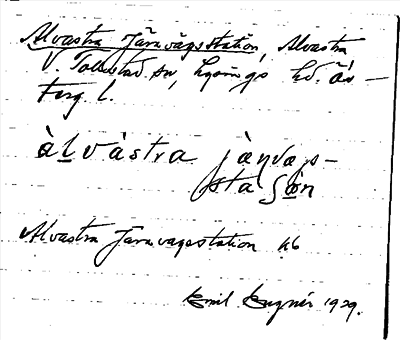 Alvastra Järnvägsstation, Alvastra
V. Tollstad sn, Lysings hd. Ös-
terg l.
àlvàstra jæṇvæp-
staʃòn
Alvastra Järnvagsstation hb
Emil 1929.